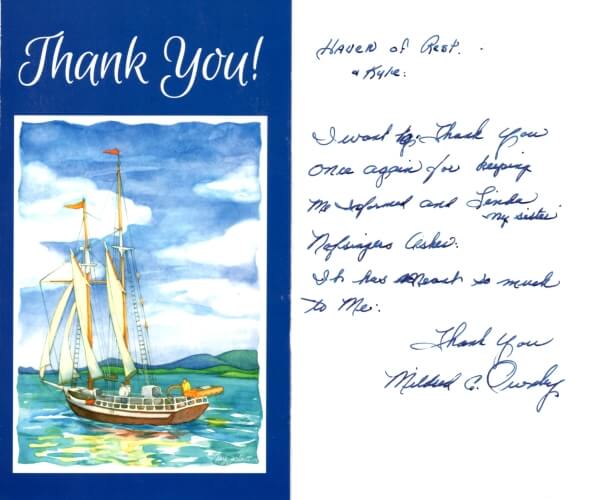 Thank You!
HAVEN of Rest.
& Kyle.
I want to Thank You
once again for keeping
me informed and Linda
my sister
Nofsingers Ashes.
It has meant so much
to Me.
Thank You
Mildred C.